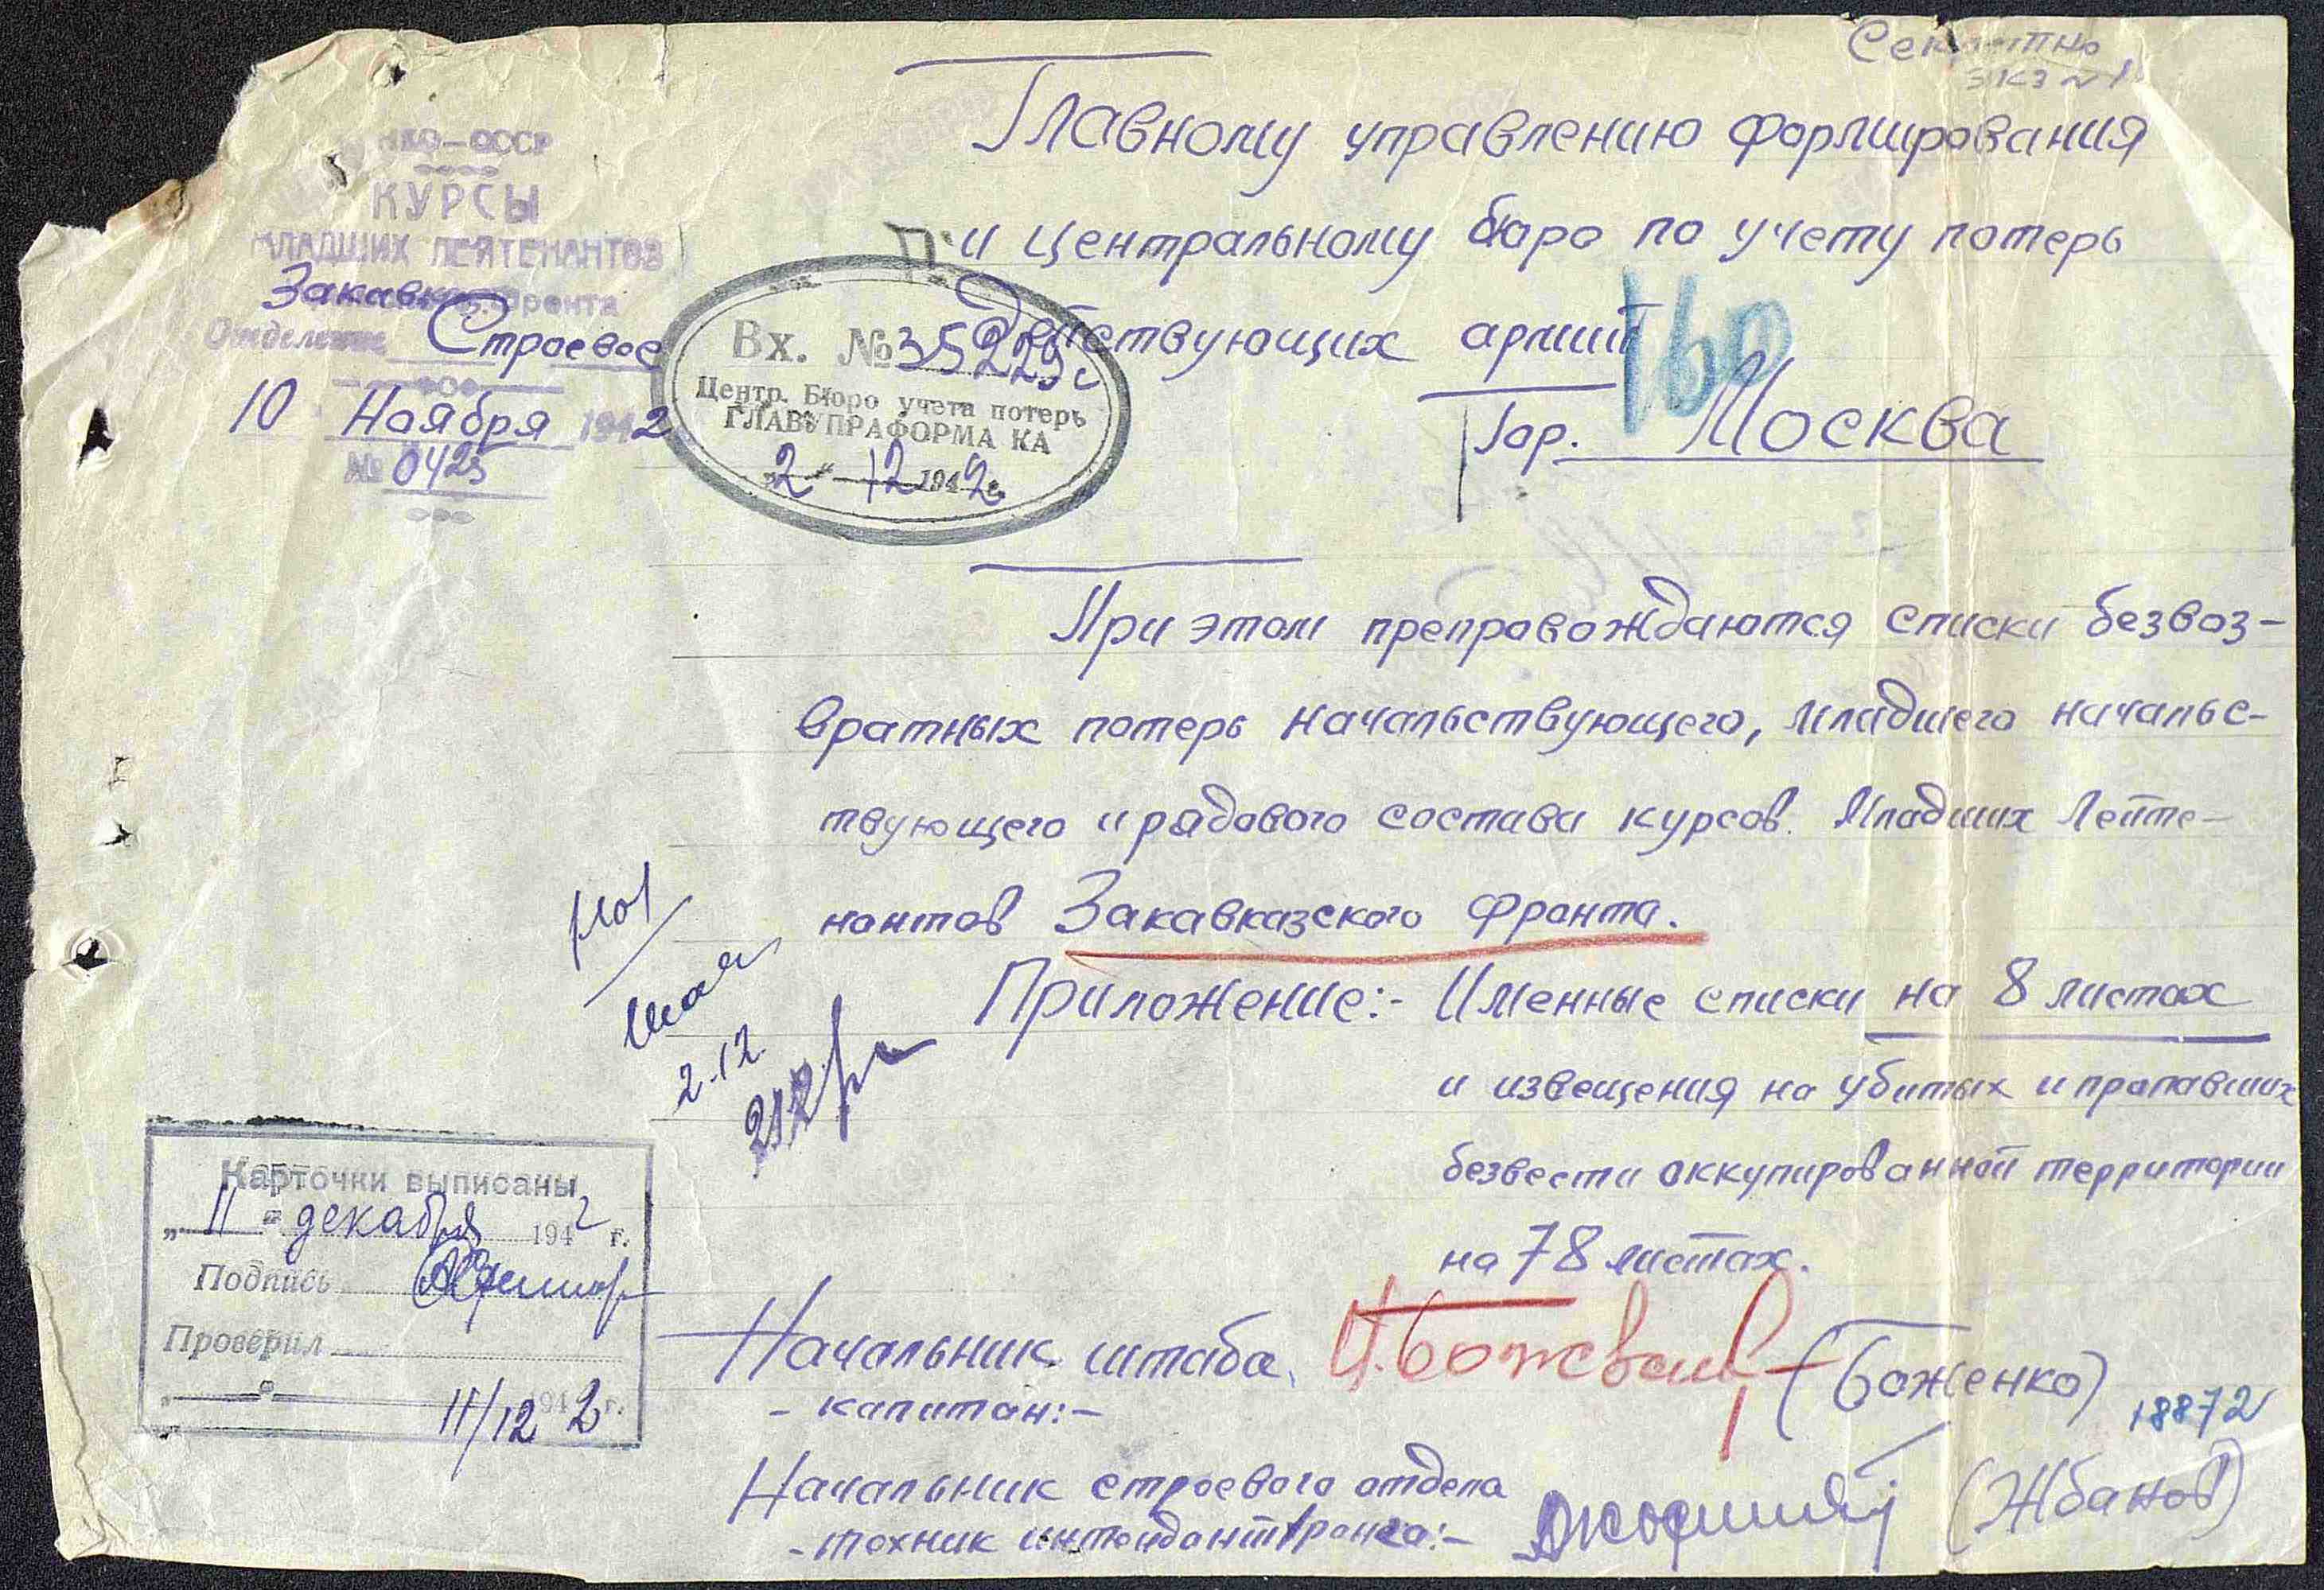 Секретно
экз № 1
НКО-СССР
КУРСЫ
МЛАДШИХ ЛЕЙТЕНАНТОВ
Закавк. фронта
Отделение Строевое
10 Ноября 1942
№ 0423
Главному управлению формирования
и центральному бюро по учету потерь
Действующих армий
160
Гор. Москва
Вх. № 35229с
Центр. Бюро учета потерь
ГЛАВУПРАФОРМА КА
2 - 12 1942г.
При этом препровождаются списки безвоз-
вратных потерь начальствующего, младшего начальс-
твующего и рядового состава курсов Младших Лейте-
нантов Закавказского Фронта.
Приложение:- Именные списки на 8 листах
и извещения на убитых и пропавших
безвести оккупированной территории
на 78 листах.
2.12
Карточки выписаны
„11" декабря 1942 г.
Подпись
Проверил
11/12 1942 г.
Начальник штаба
- капитан:- (Боженко)
18872
Начальник строевого отдела
- техник интендант I ранга:- (Жбанов)